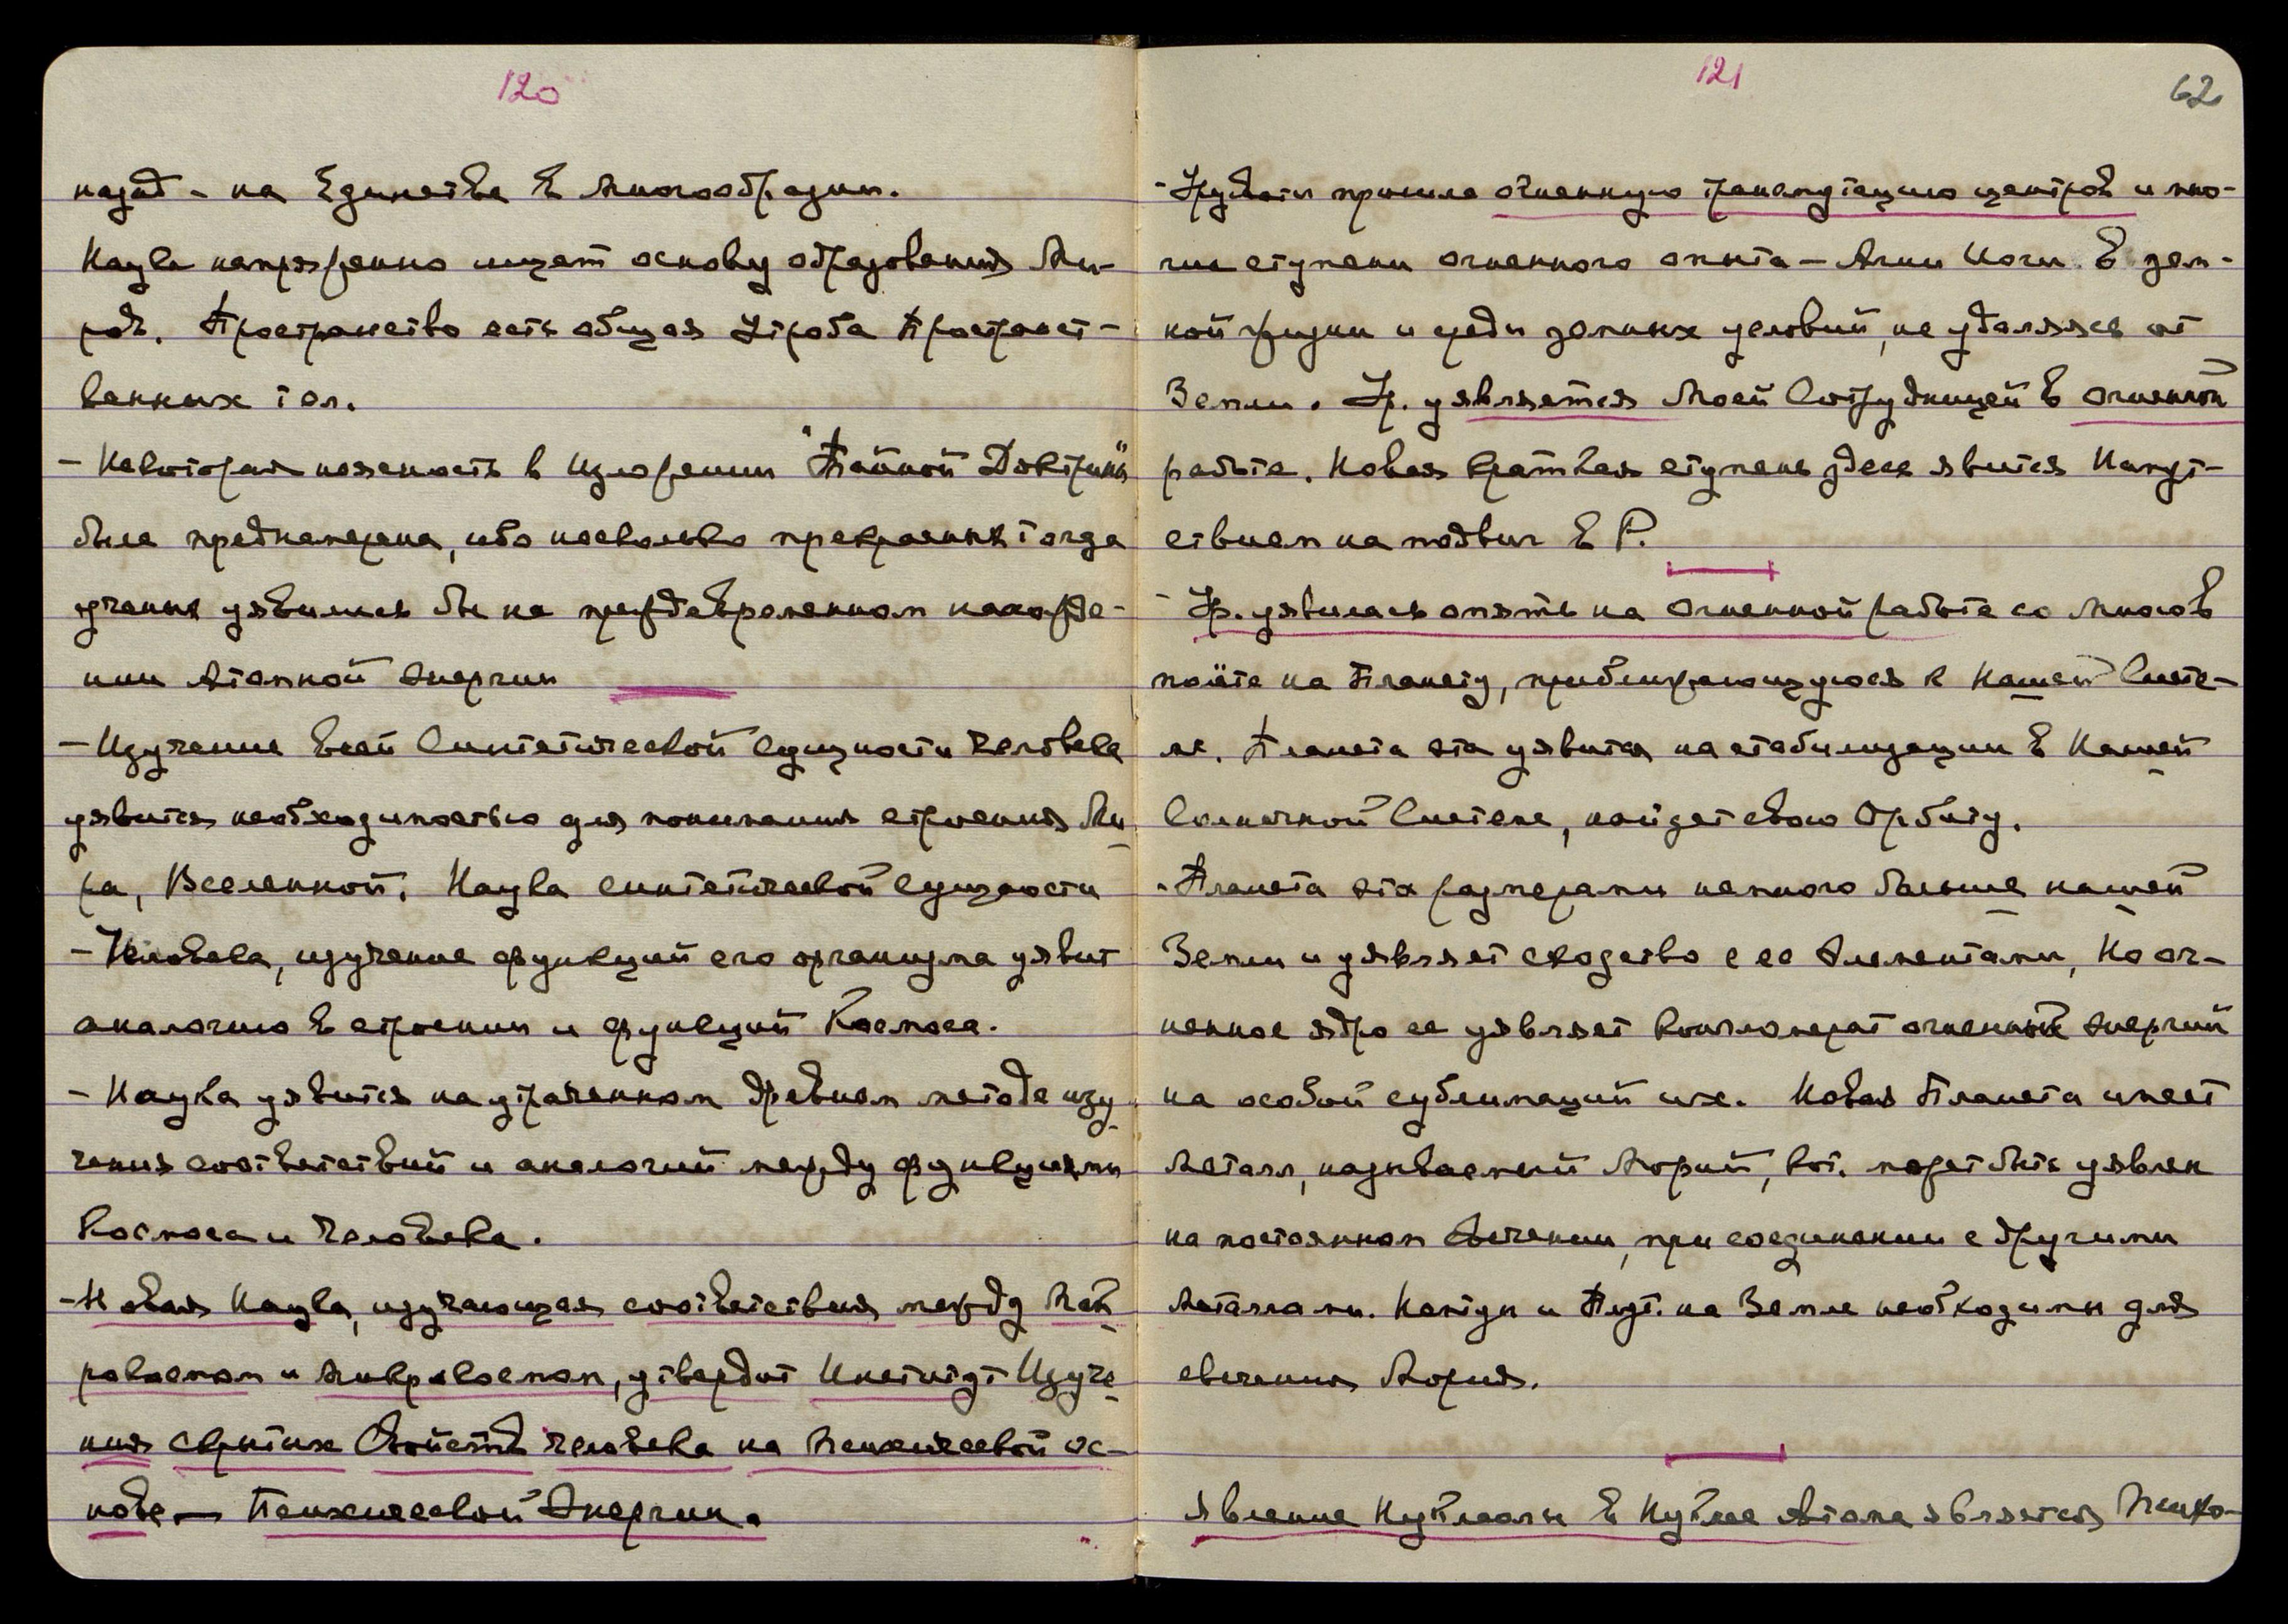 120
назад - на Единстве в многообразии.
Наука напряженно ищет основу образования Ми-
ров. Пространство есть общая Утроба Пространст-
венных тел.
- Некоторая неясность в изложении "Тайной Доктрины"
была преднамерена, ибо несколько прекрасных тогда
учения уявились бы на преждевременном нахожде-
нии Атомной Энергии
- Изучение всей Синтетической Сущности Человека
уявится необходимостью для понимания строения Ми-
ра, Вселенной. Наука синтетической сущности
- Человека, изучение функций его организма уявит
аналогию в строении и функций Космоса.
- Наука уявится на утраченном древнем методе изу-
чения соответствий и аналогий между функциями
Космоса и Человека.
- Новая Наука, изучающая соответствия между Мак-
рокосмом и Микрокосмом, утвердит Институт Изуче-
ния скрытых Свойств человека на Психической ос-
нове — Психической Энергии.
121
62
- Урусвати прошла огненную трансмутацию центров и мно-
гие ступени огненного опыта - Агни Йоги в зем-
ной жизни и среди земных условий, не удаляясь от
Земли. Ур. уявляется Моей Сотрудницей в огненной
работе. Новая краткая ступень здесь явится Напут-
ствием на подвиг в Р.
- Ур. уявилась опять на огненной работе со Мною в
полёте на Планету, приближающуюся к Нашей Систе-
ме. Планета эта уявится на стабилизации в Нашей
Солнечной Системе, найдет свою Орбиту.
- Планета эта размерами немного больше нашей
Земли и уявляет сходство с ее Элементами, Но ог-
ненное ядро ее уявляет конгломерат огненных энергий
на особой сублимаций их. Новая Планета имеет
Металл, называемый Морий, кот. может быть уявлен
на постоянном Свечении, при соединении с другими
Металлами. на Земле необходимы для
свечения Мория.
явление Нуклеолы в Нуклее Атома является Психо-